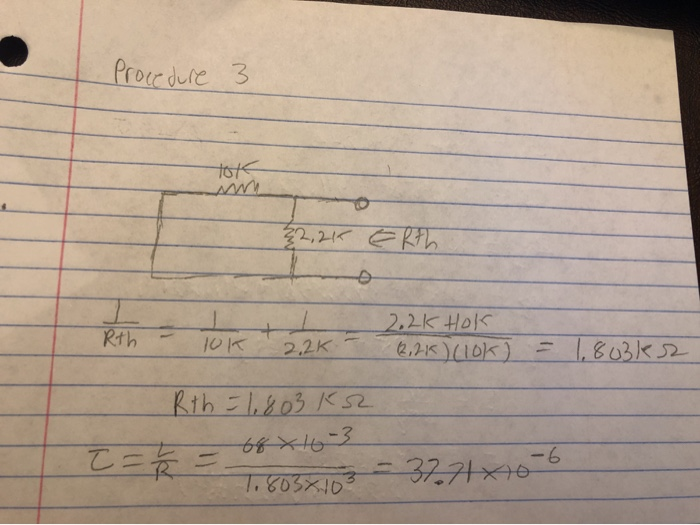 Procedure 3
10K
2.2K ⇐ Rth
1/Rth = 1/10K + 1/2.2K = 2.2K+10K/(2.2K)(10K) = 1.803KΩ
Rth = 1.803 KΩ
τ = L/R = 68×10^-3/1.803×10^3 = 37.71×10^-6